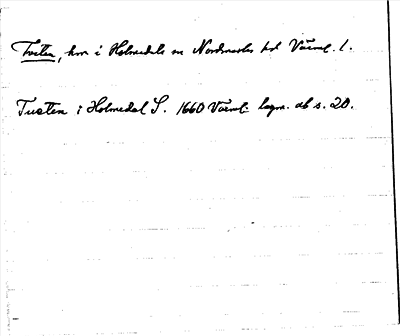 Tveten, hm i Holmedals sn Nordmarks hd Värml. l.
Tueten i Holmedal S. 1660 Värml. lagm. db s. 20.